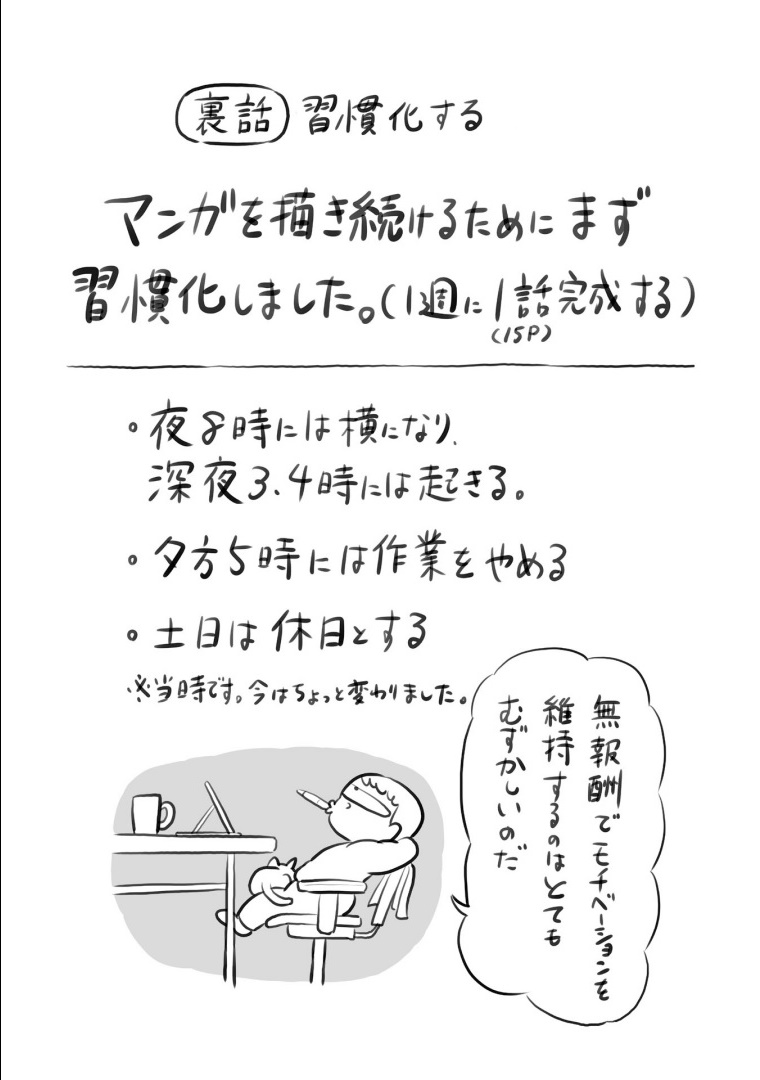 裏話 習慣化する
マンガを描き続けるためにまず
習慣化しました。(1週に1話完成する)
(15P)
・夜8時には横になり、
深夜3、4時には起きる。
・夕方5時には作業をやめる
・土日は休日とする
※当時です。今はちょっと変わりました。
無報酬でモチベーションを
維持するのはとても
むずかしいのだ